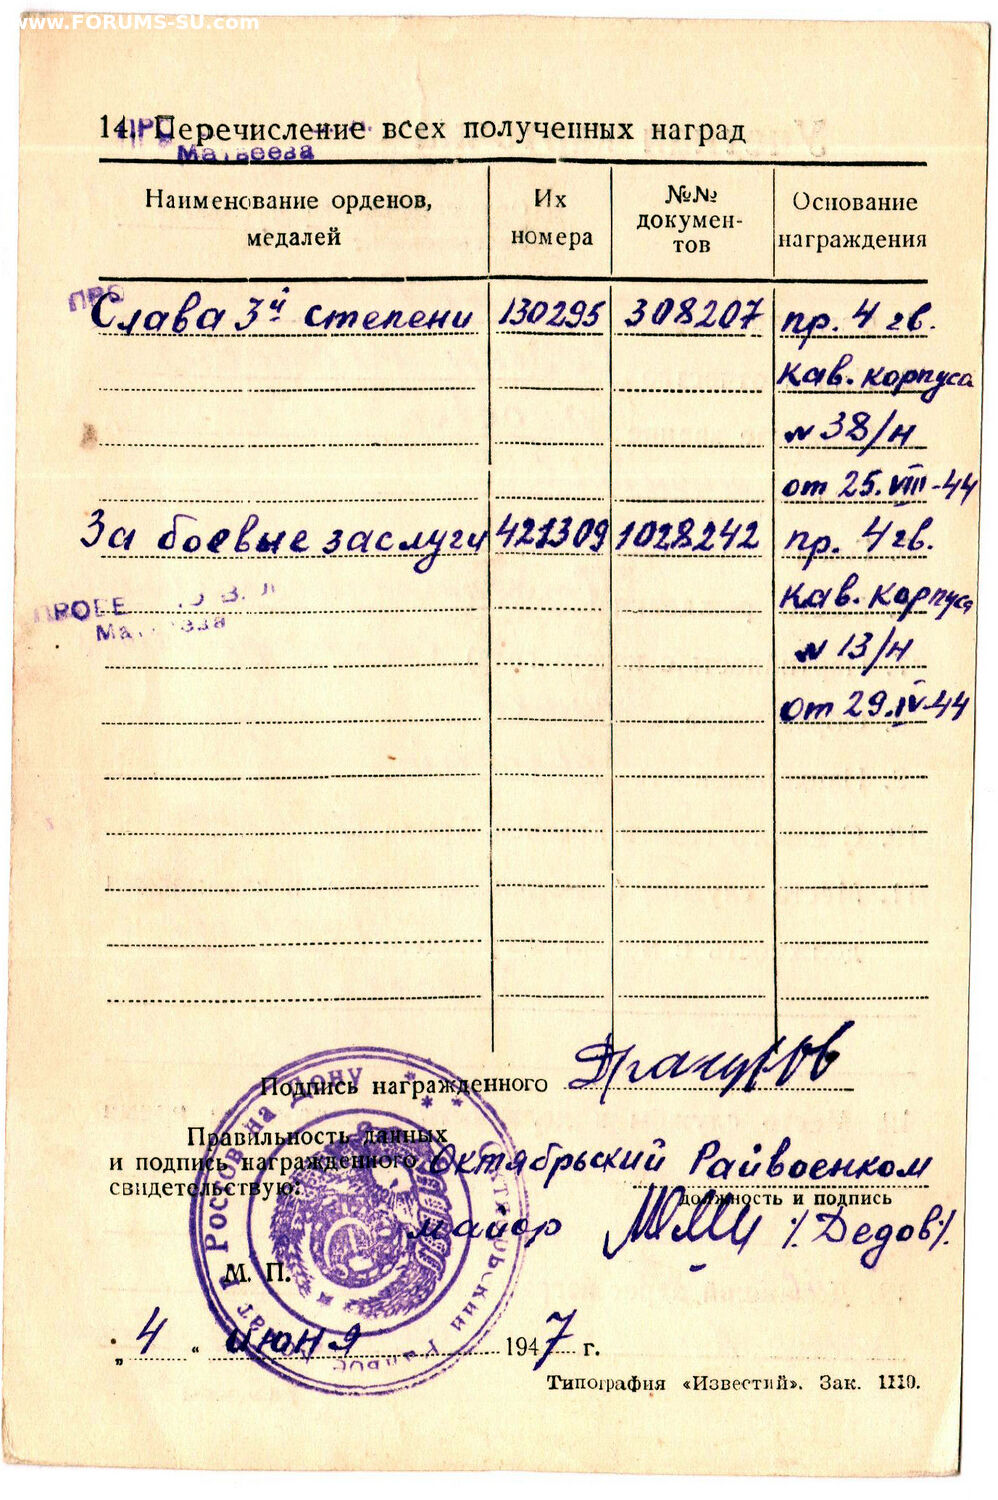 www.FORUMS-SU.com
14. Перечисление всех полученных наград
Матвеева
Наименование орденов, медалей
Их номера
№№ докумен-тов
Основание награждения
Слава 3й степени 130295 308207 пр. 4 гв.
кав. корпуса
№ 38/н
от 25.VIII-44
За боевые заслуги 421309 1028242 пр. 4 гв.
кав. корпуса
№ 13/н
от 29.IV-44
Подпись награжденного
Правильность данных
и подпись награжденного Октябрьский Райвоенком
свидетельствую:
должность и подпись
майор /Дедов/.
М. П.
„4“ июня 1947 г.
Типография «Известий». Зак. 1110.